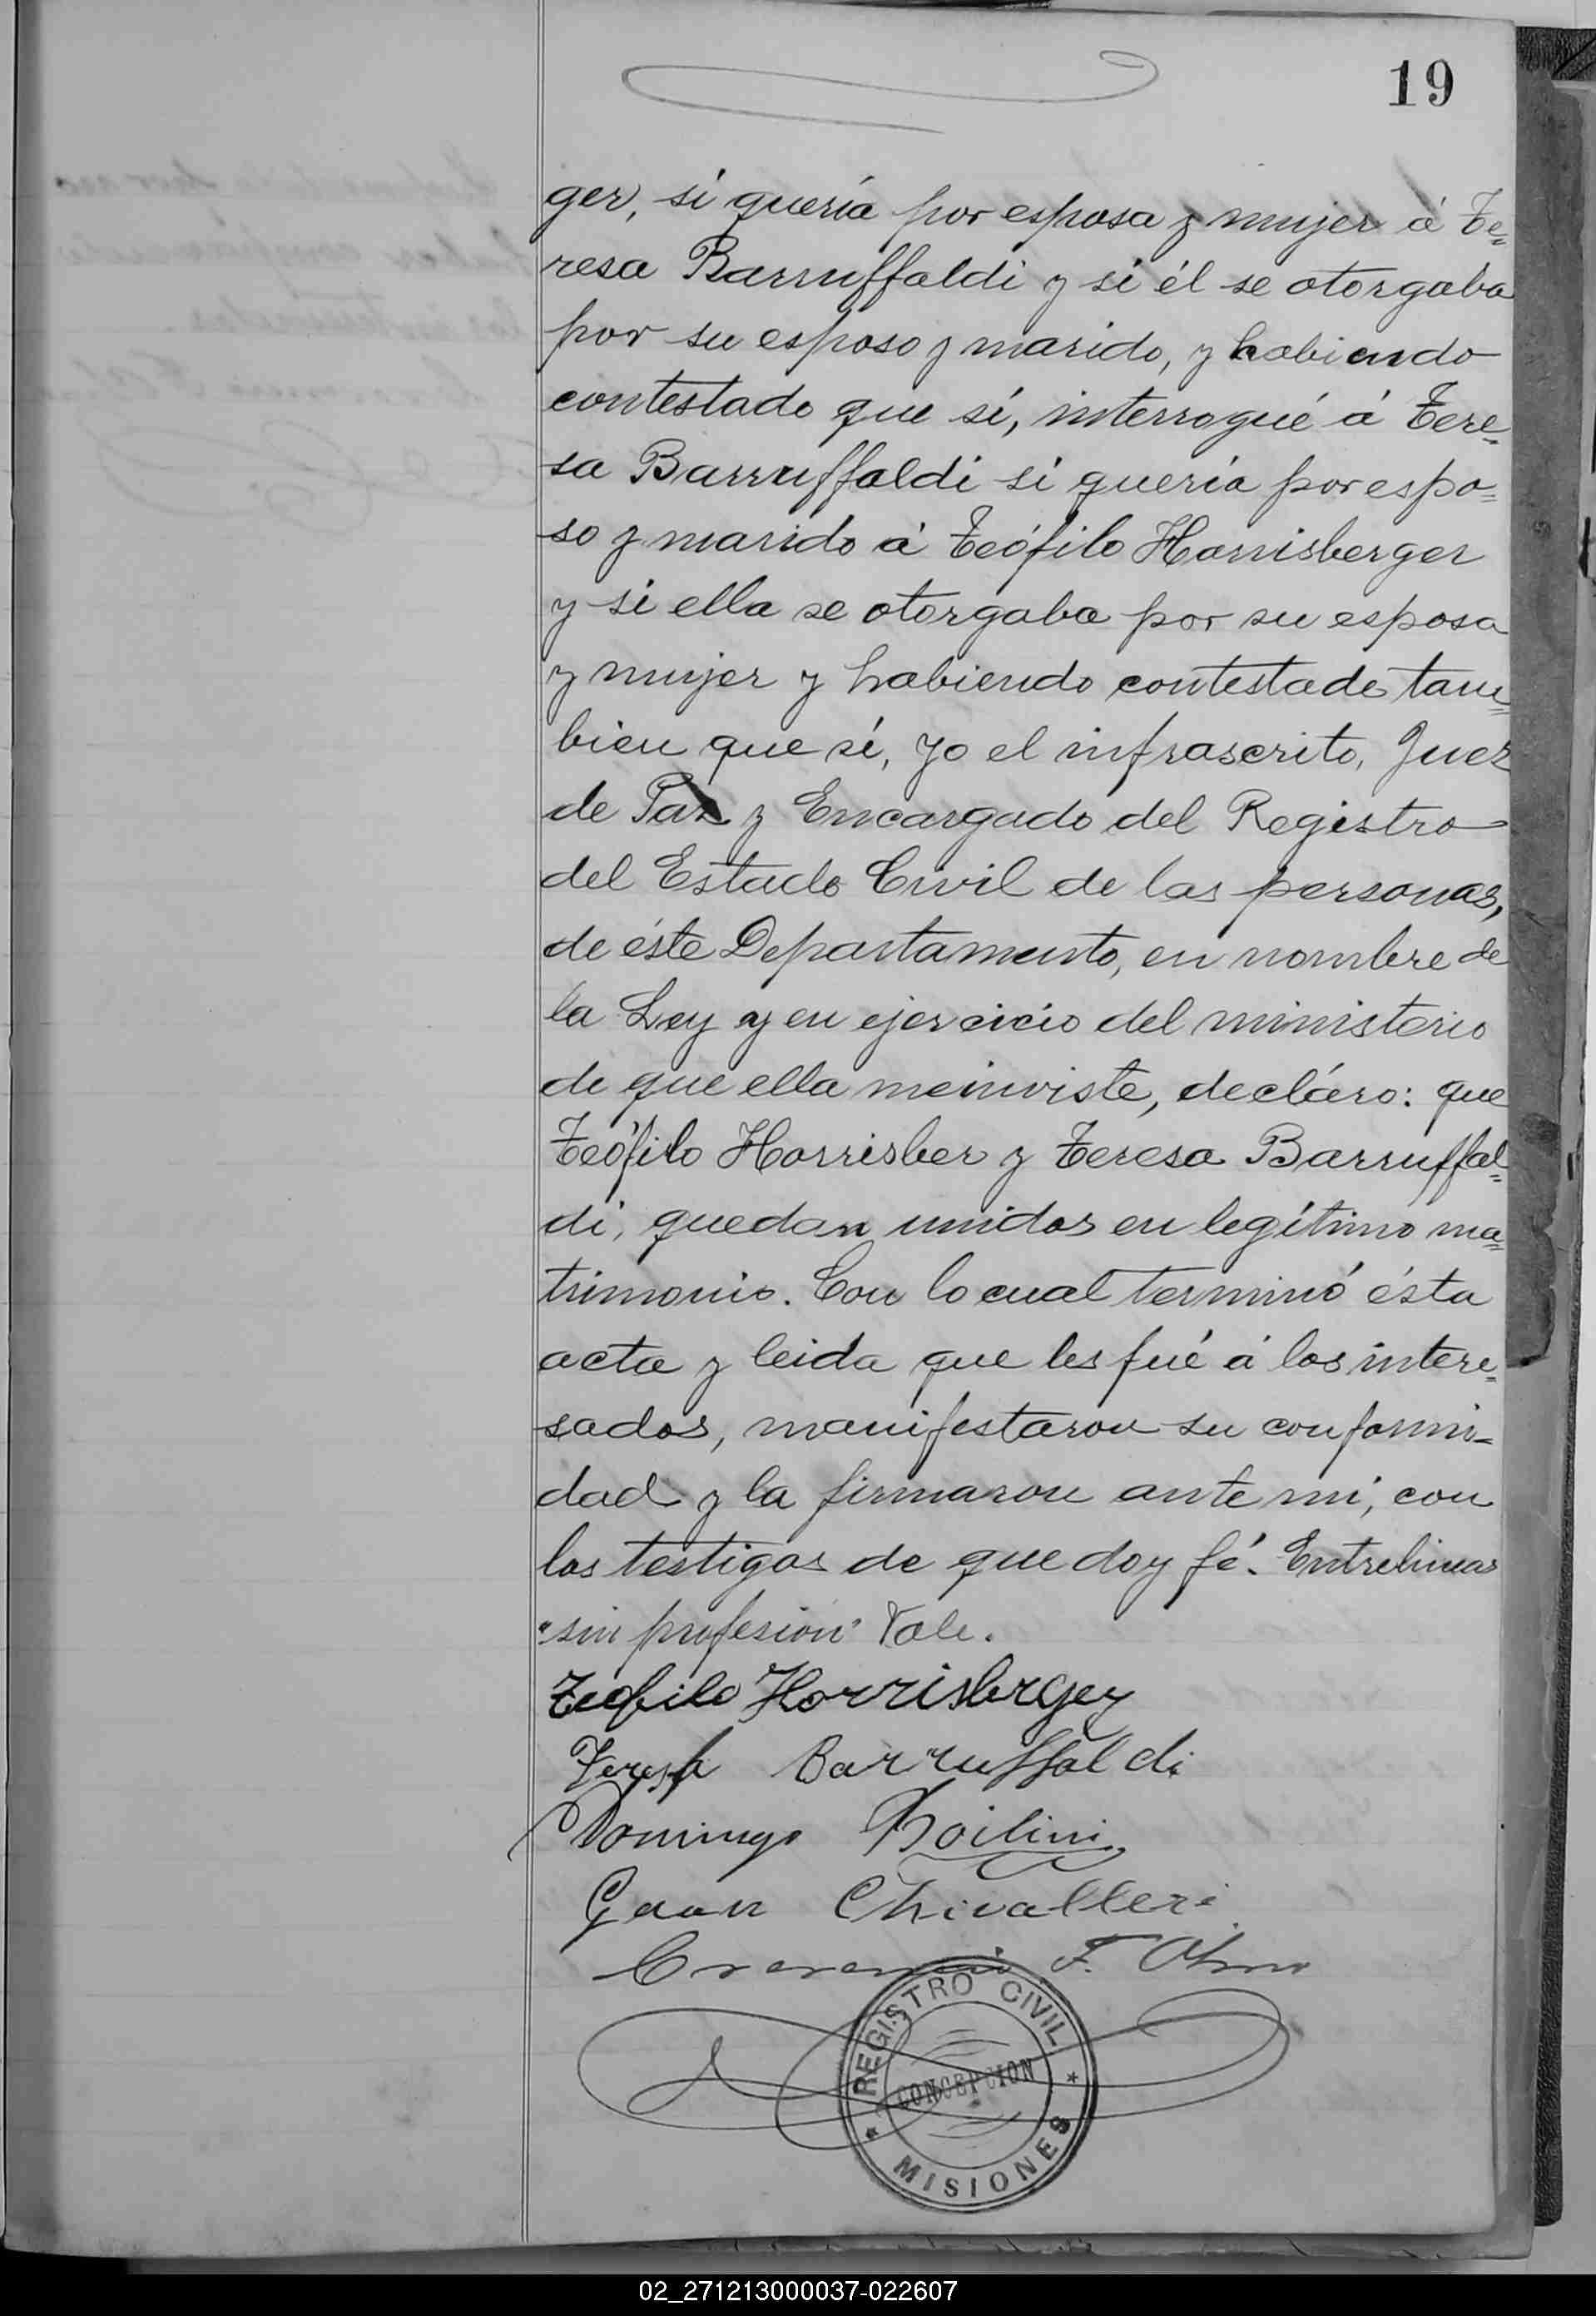 19
ger, si quería por esposa y mujer á Te=
resa Barruffaldi y si él se otorgaba
por su esposo y marido, y habiendo
contestado que sí, interrogué á Tere=
sa Barruffaldi si quería por espo=
so y marido á Teófilo Harrisberger
y si ella se otorgaba por su esposa
y mujer y habiendo contestado tam=
bien que sí, yo el infrascrito, Juez
de Paz y Encargado del Registro
del Estado Civil de las personas,
de éste Departamento, en nombre de
la Ley y en ejercicio del ministerio
de que ella me inviste, decláro: que
Teófilo Horrisber y Teresa Barruffal=
di, quedan unidos en legítimo ma=
trimonio. Con lo cual terminó ésta
acta y leida que les fué á los intere=
sados, manifestaron su conformi=
dad y la firmaron ante mi, con
los testigos de que doy fé. Entrelineas
"sin profesión" Vale.
Teofilo Horrisberger
Teresa Barruffaldi
Domingo
Guan Chivalleri
F.
REGISTRO CIVIL
CONCEPCION
* MISIONES *
02_271213000037-022607